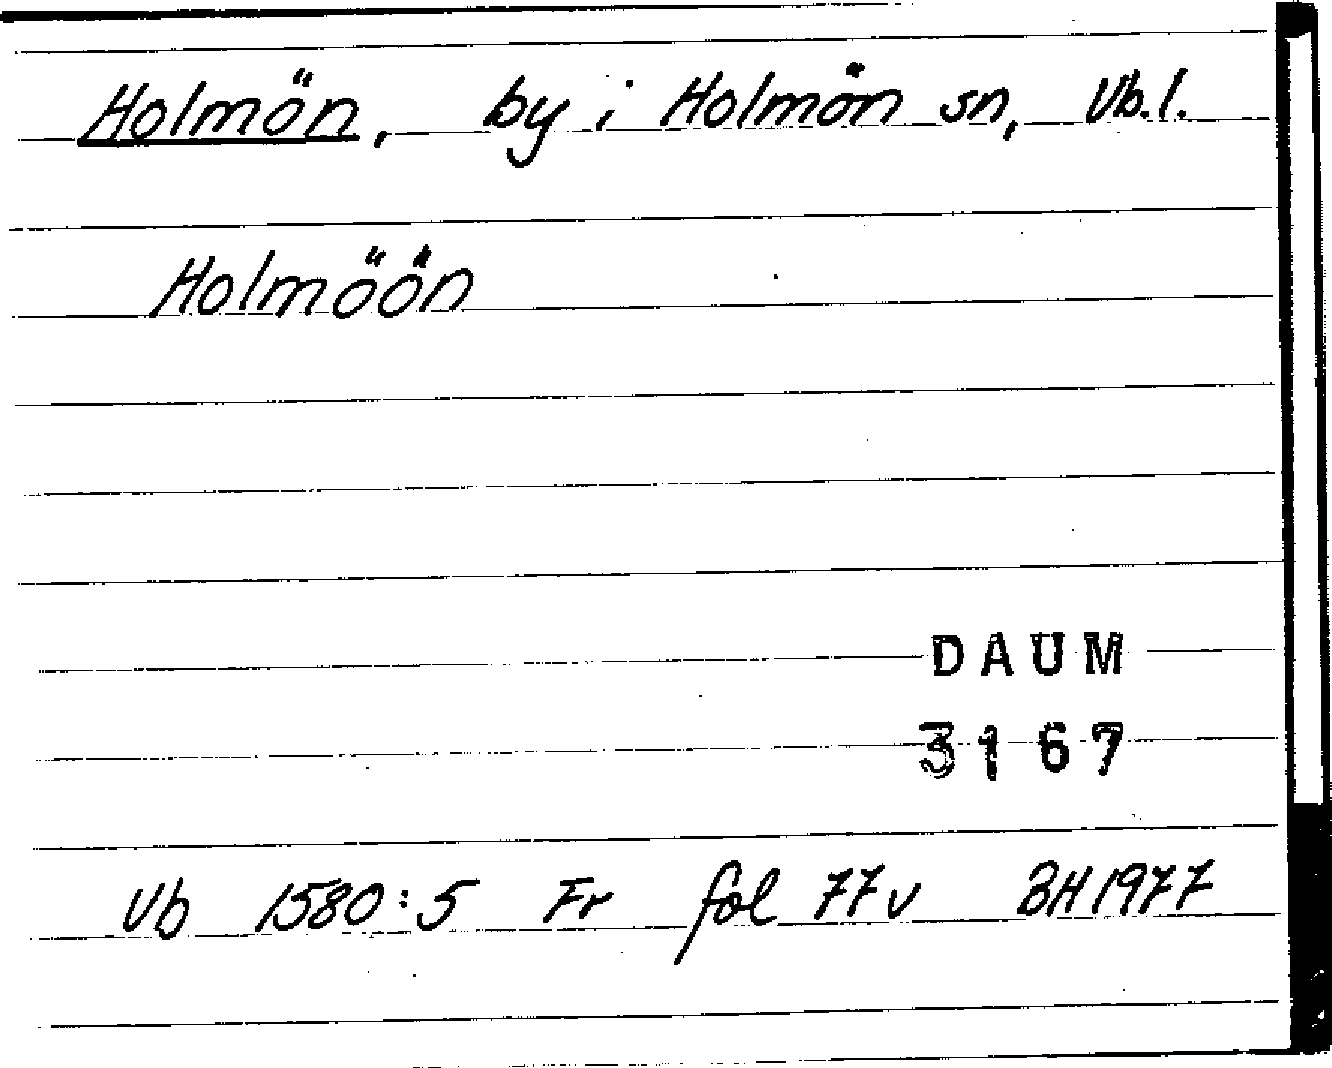 Holmön, by i Holmön sn, Vb.l.
Holmöön
DAUM
3167
Vb 1580:5 Fr fol 77v BH1977